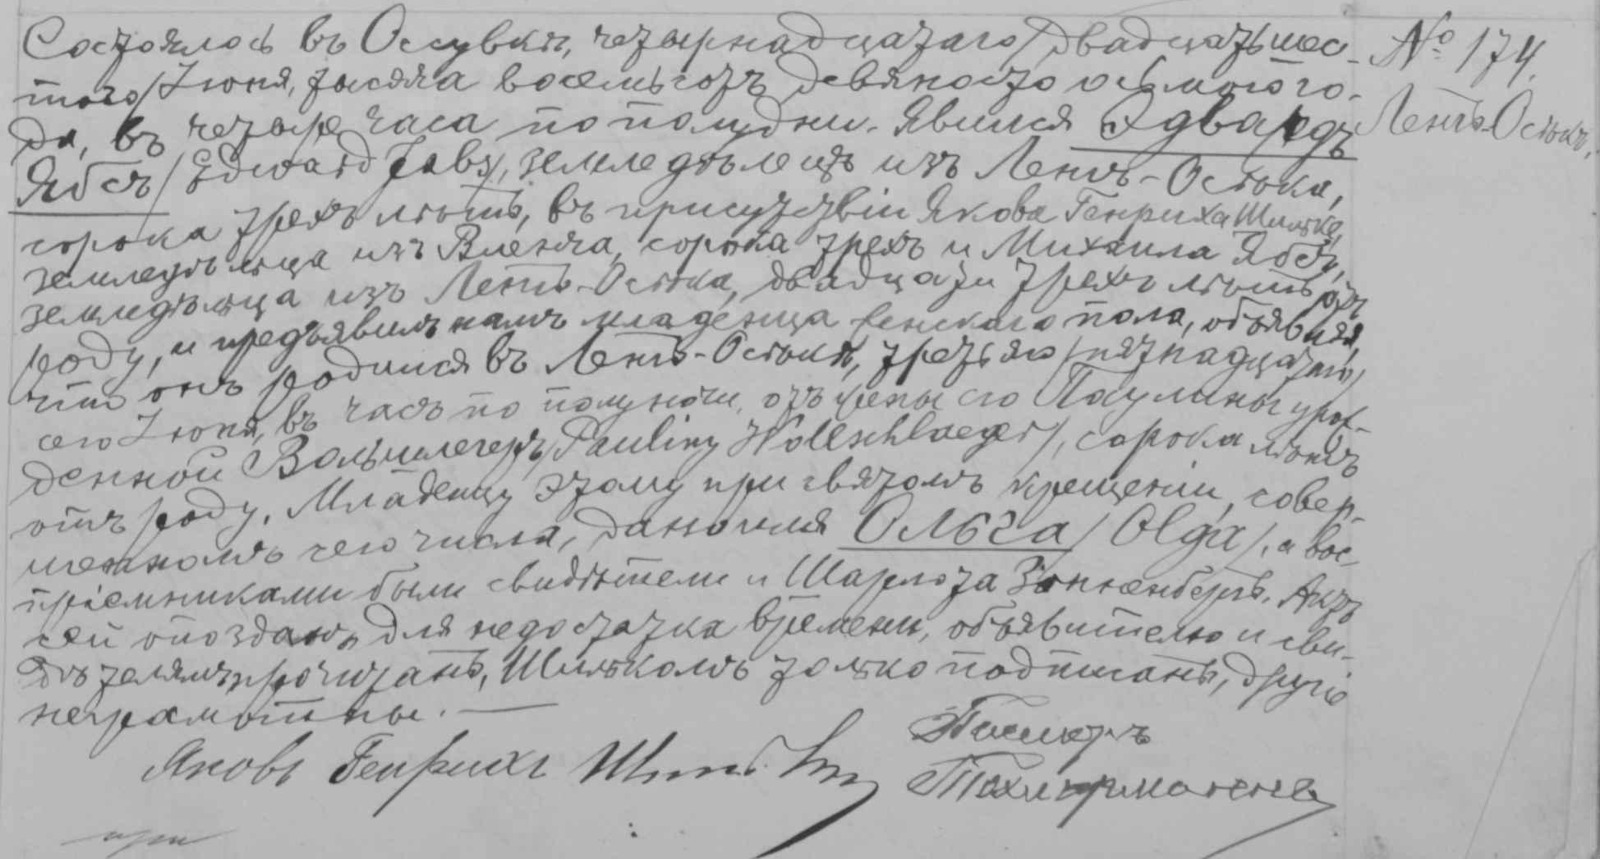 Состоялось въ Осувкѣ, четырнадцатаго / двадцать шес-
того / Іюня, тысяча восемьсотъ девяносто осьмого го-
да, въ четыре часа по полудни. Явился Эдвардъ
Ябсъ / Edward Jabs /, земледѣлецъ изъ Лентъ-Остока,
сорока трехъ лѣтъ, въ присутствіи Якова Генриха Шильке,
земледѣльца изъ Вленча, сорока трехъ и Михаила Ябсъ,
земледѣльца изъ Лентъ-Остока, двадцати трехъ лѣтъ отъ
роду, и предъявилъ намъ младенца женскаго пола, объявляя,
что онъ родился въ Лентъ-Остокѣ, третьяго / пятнадцатаго /
сего Іюня, въ часъ по полуночи, отъ жены его Паулины урож-
денной Вольшлегеръ / Pauliny Wollschlaeger /, сорока лѣтъ
отъ роду. Младенцу этому при святомъ крещеніи, совер-
шенномъ сего числа, дано имя Ольга / Olga /, а вос-
пріемниками были свидѣтели и Шарлота Зонненбергъ. Актъ
сей опозданъ для недостатка времени, объявителю и сви-
дѣтелямъ прочитанъ, Шилькомъ только подписанъ, другіе
неграмотны. —
Яковъ Генрихъ
Пасторъ
№ 174.
Лентъ-Остокъ.